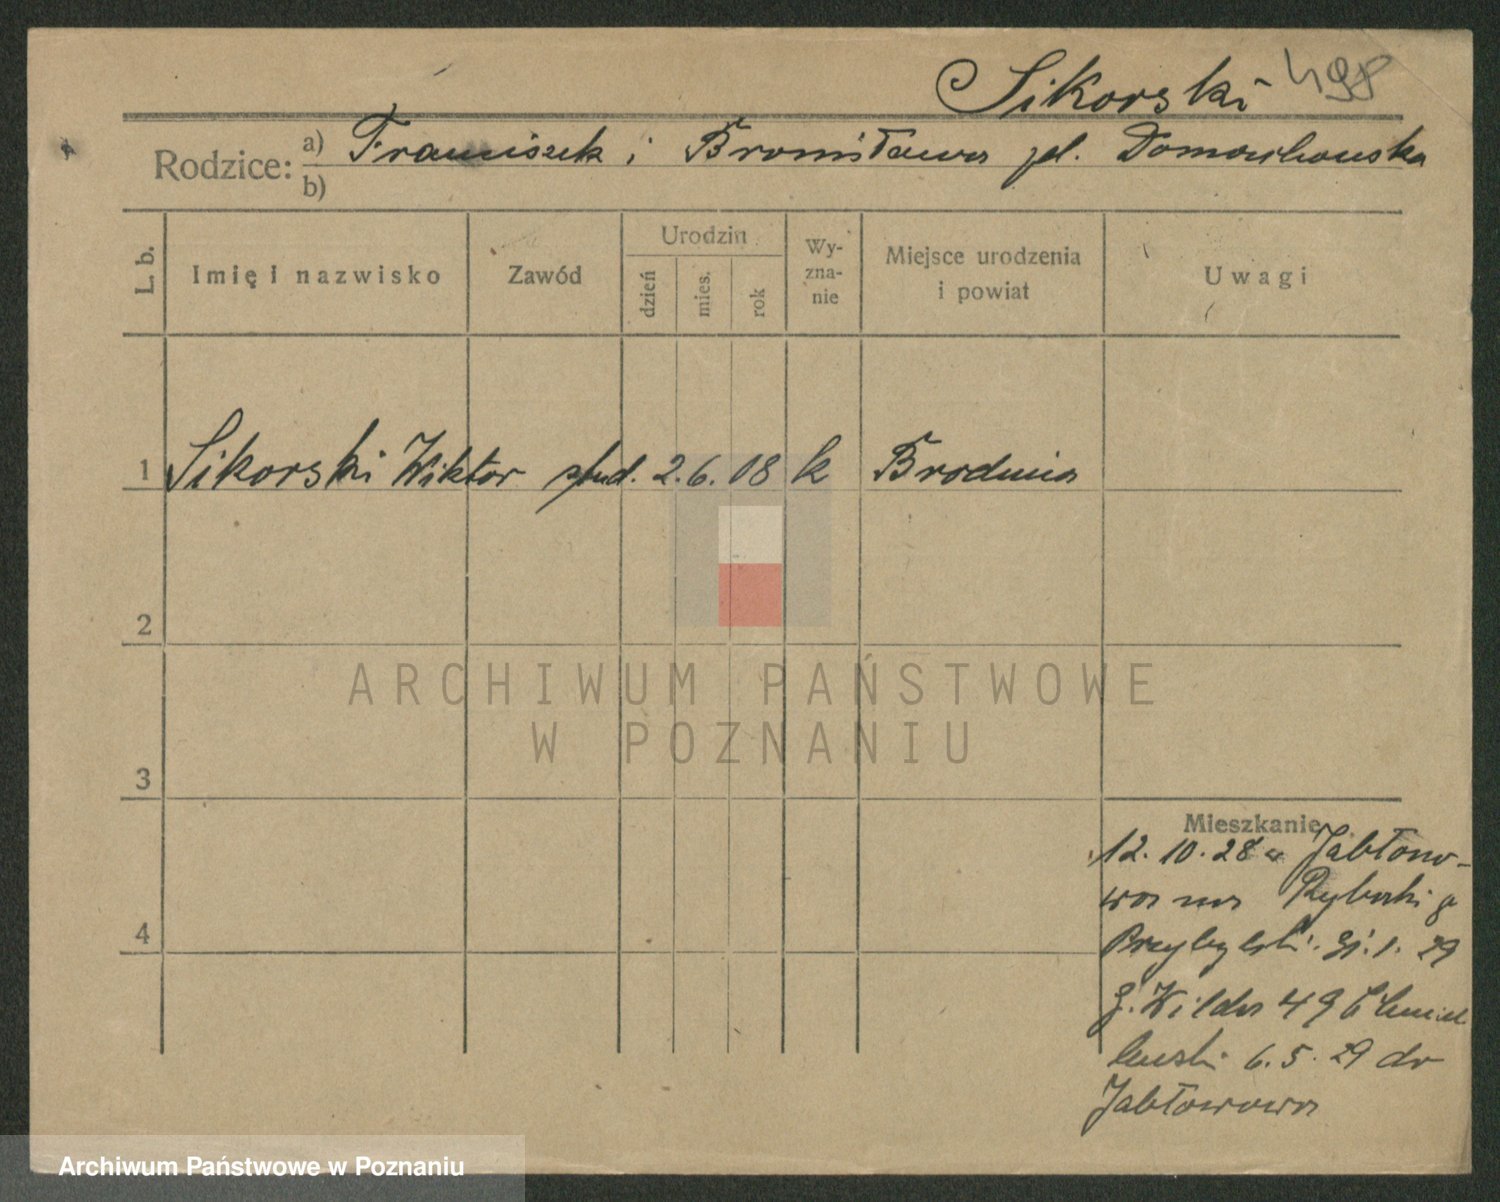 Sikorski 498
Rodzice: a) Franciszek i Bronisława zd. Domachowska
b)
L. b. Imię i nazwisko Zawód Urodzin dzień mies. rok Wyznanie Miejsce urodzenia i powiat Uwagi
1 Sikorski Wiktor stud. 2. 6. 08 k Brodnica
2
ARCHIWUM PAŃSTWOWE
W POZNANIU
3
Mieszkanie
12. 10. 28 Jabłono-
wa na Rybaki
Przybylski. 31. 1. 29
G. Wilda 49
6. 5. 29 do
Jabłonowa
4
Archiwum Państwowe w Poznaniu